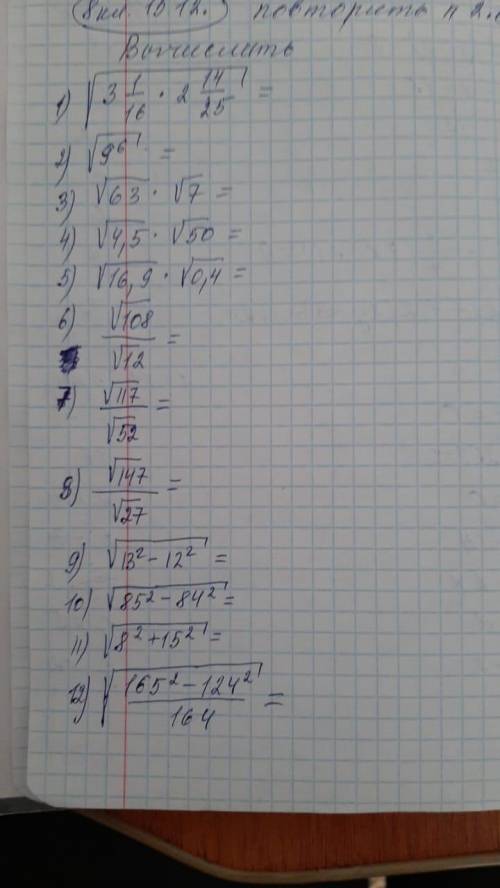 (8 кл. 15 12.) повторить п 2.
Вычислить
1) √(3 1/16 · 2 14/25) =
2) √(9⁶) =
3) √63 · √7 =
4) √4,5 · √50 =
5) √16,9 · √0,4 =
6) √108/√12 =
7) √117/√52 =
8) √147/√27 =
9) √(13² - 12²) =
10) √(85² - 84²) =
11) √(8² + 15²) =
12) √((165² - 124²)/164) =